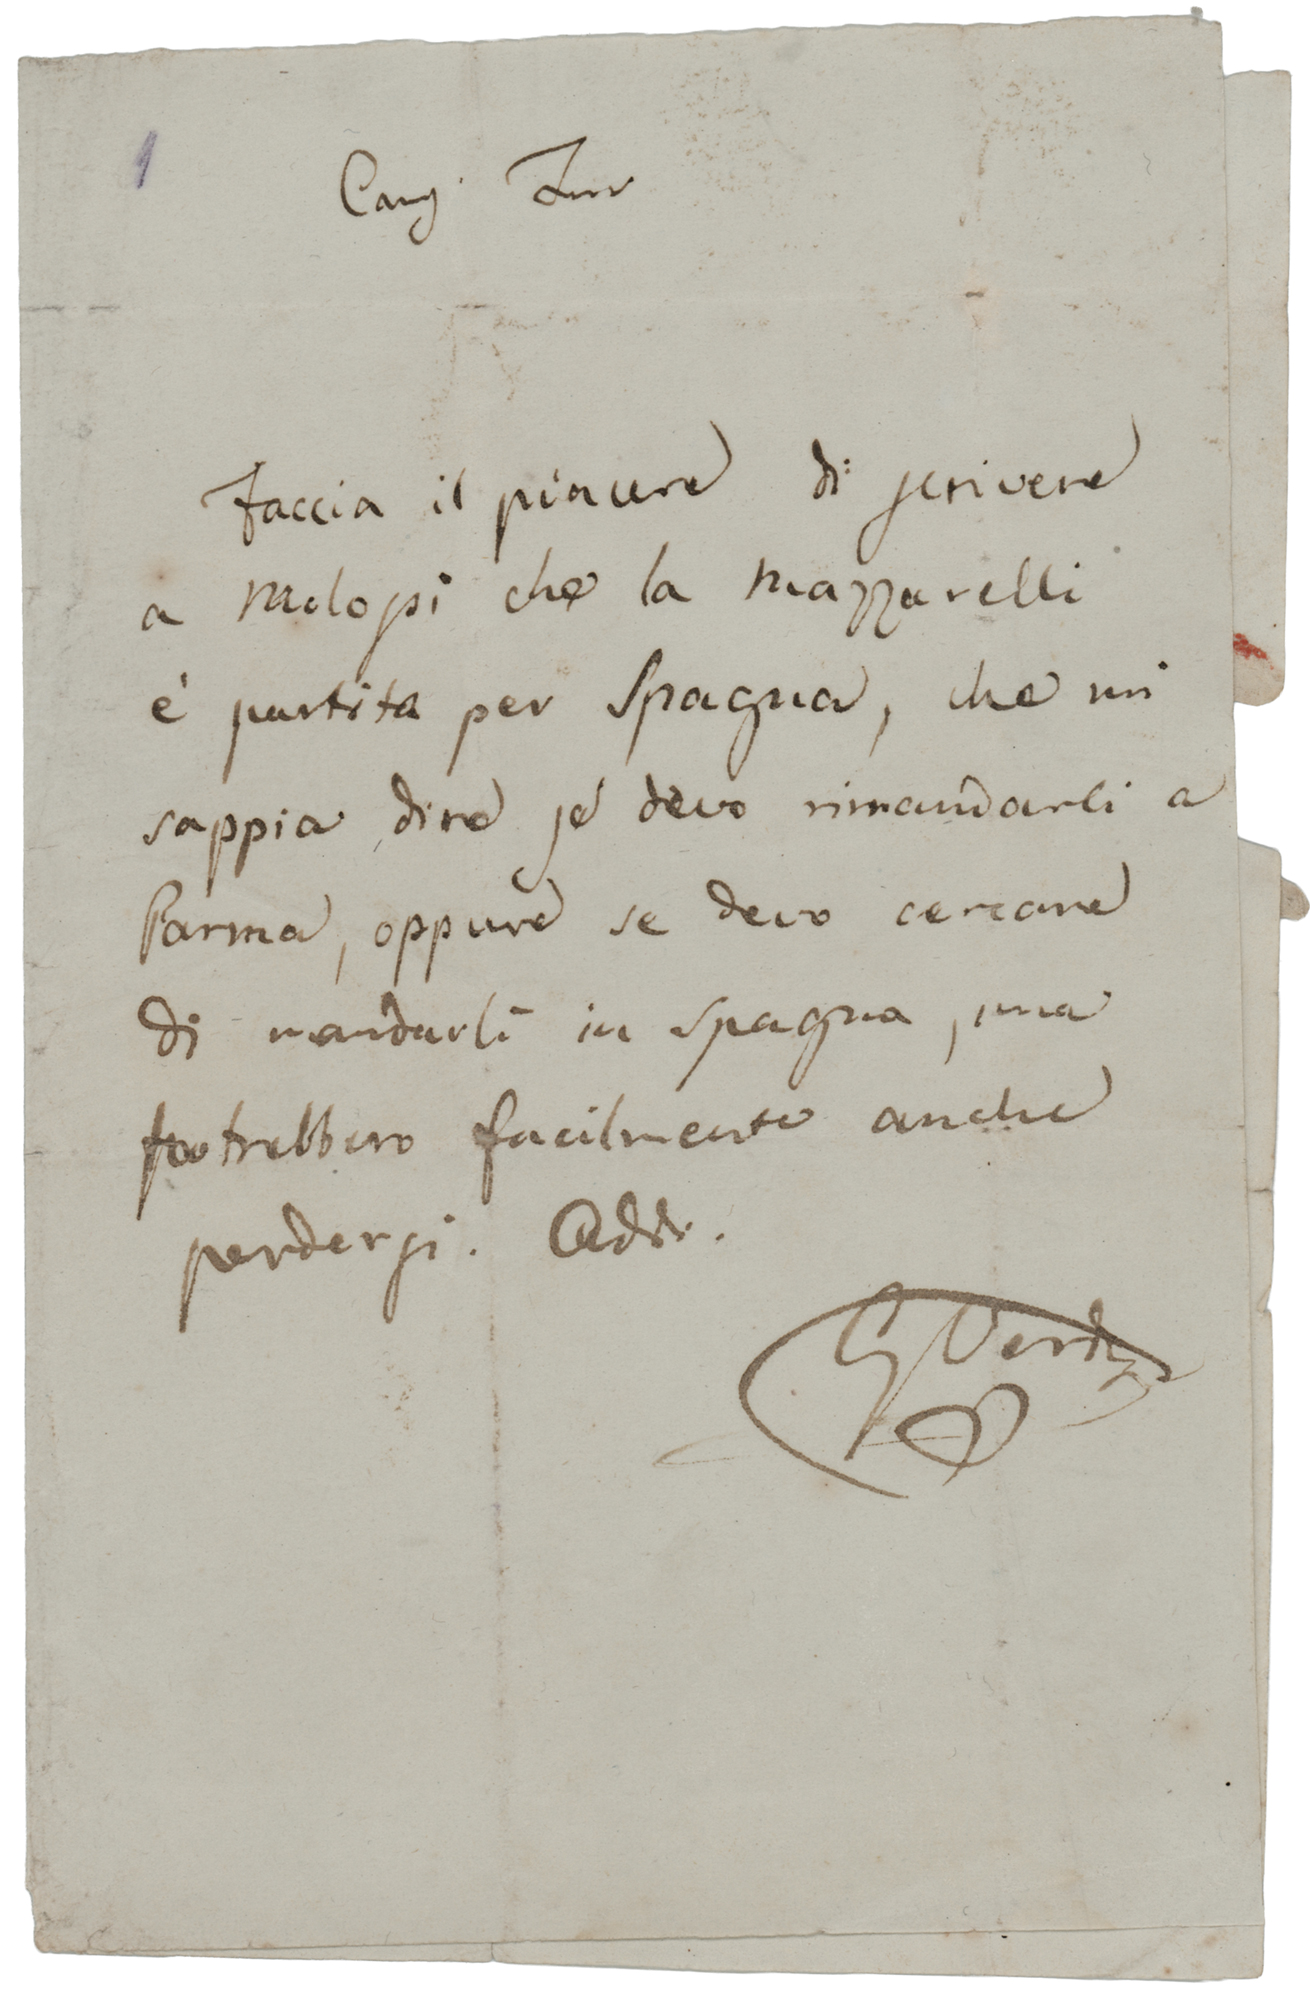 1
Faccia il piacere di scrivere
a Melosi che la Mazzarelli
è partita per Spagna, che mi
sappia dire se devo rimandarli a
Parma, oppure se devo cercare
di mandarli in Spagna, ma
potrebbero facilmente anche
perdersi. Addio.
G Verdi